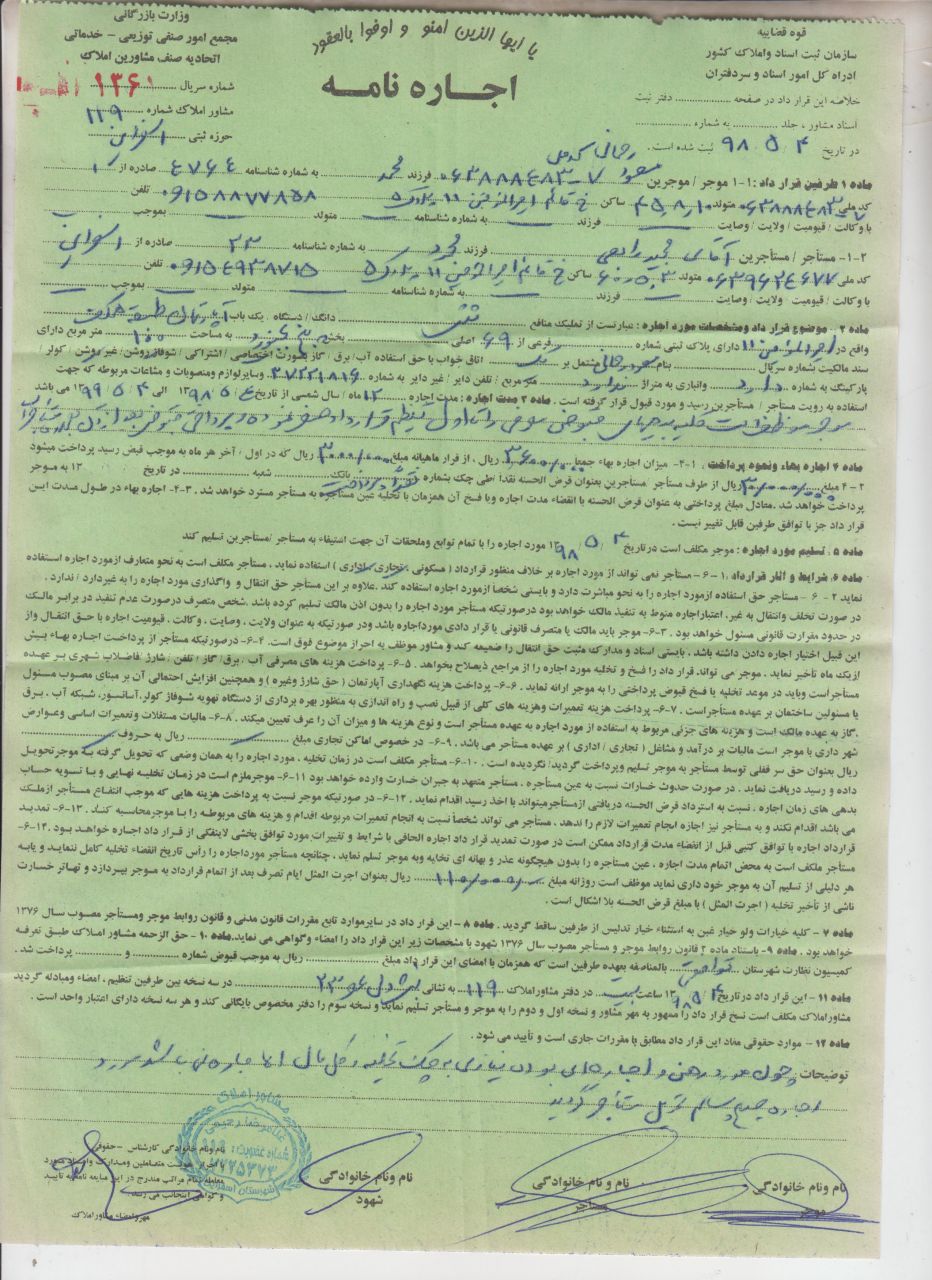 یا ایها الذین امنو و اوفوا بالعقود
قوه قضاییه
سازمان ثبت اسناد واملاک کشور
ادراه کل امور اسناد و سردفتران
خلاصه این قرار داد در صفحه ............ دفتر ثبت
اسناد مشاور ، جلد ............ به شماره ............
در تاریخ ۹۸/۵/۴ ثبت شده است .
اجـــاره نامـــه
وزارت بازرگانی
مجمع امور صنفی توزیعی - خدماتی
اتحادیه صنف مشاورین املاک
شماره سریال ۱۳۶۱
مشاور املاک شماره ۱۱۹
حوزه ثبتی اسفراین
ماده ۱ طرفین قرار داد : ۱-۱ موجر / موجرین مسعود رحمانی کدملی ۰۶۳۸۸۸۴۸۳-۷ فرزند محمد به شماره شناسنامه ۴۷۶۴ صادره از
کد ملی متولد ۴۵،۸،۱۰ ساکن خ قائم امیرالمومنین ۱۱ پلاک ۵ تلفن ۰۹۱۵۸۸۷۷۸۵۸
با وکالت / قیومیت / ولایت / وصایت فرزند به شماره شناسنامه متولد بموجب
۱-۲- مستأجر / مستأجرین آقای فرزند محمد به شماره شناسنامه ۲۳ صادره از اسفراین
کد ملی ۰۶۳۹۶۲۴۶۷۷ متولد ساکن خ قائم امیرالمومنین ۱۱ پلاک ۵ تلفن ۰۹۱۵۴۹۳۸۷۱۵
با وکالت / قیومیت ، ولایت / وصایت فرزند به شماره شناسنامه متولد بموجب
ماده ۲ - موضوع قرار داد ومشخصات مورد اجاره : عبارتست از تملیک منافع شش دانگ / دستگاه ، یک باب آپارتمان طبقه همکف
واقع در امیرالمومنین ۱۱ دارای پلاک ثبتی شماره فرعی از ۶۹ اصلی بخش پنج بجنورد به مساحت ۱۰۰ متر مربع دارای
سند مالکیت بشماره سریال بنام مسعود رحمانی مشتمل بر اتاق خواب با حق استفاده آب/ برق / گاز بصورت اختصاصی / اشتراکی / شوفاژ روشن/ غیر روشن / کولر /
پارکینگ به شماره دارد وانباری به متراژ ندارد متر مربع / تلفن دایر / غیر دایر به شماره ۳۷۲۲۱۸۱۶ وسایرلوازم ومنصوبات و مشاعات مربوطه که جهت
استفاده به رویت مستأجر / مستأجرین رسید و مورد قبول قرار گرفته است . ماده ۳ مدت اجاره : مدت اجاره ۱۲ ماه / سال شمسی از تاریخ ۱۳۹۸/۵/۴ الی ۱۳۹۹/۵/۴ می باشد
ماده ۴ اجاره بهاء ونحوه پرداخت . ۱-۴- میزان اجاره بهاء جمعا ۳۶۰۰۰/۰۰۰ ریال . از قرار ماهیانه مبلغ ۳۰۰۰/۰۰۰ ریال که در اول / آخر هر ماه به موجب قبض رسید پرداخت میشود
۲ - ۴ مبلغ ۳۰/۰۰۰/۰۰۰ ریال از طرف مستأجر مستأجرین بعنوان قرض الحسنه نقدا /طی چک بشماره نقداً پرداخت بانک شعبه در تاریخ ۱۳ به موجر
پرداخت خواهد شد . معادل مبلغ پرداختی به عنوان قرض الحسنه با انقضاء مدت اجاره ویا فسخ آن همزمان با تخلیه عین مستأجره به مستأجر مسترد خواهد شد . ۳-۴- اجاره بهاء در طول مدت این
قرار داد جز با توافق طرفین قابل تغییر نیست .
ماده ۵ . تسلیم مورد اجاره : موجر مکلف است در تاریخ ۱۳۹۸/۵/۴ مورد اجاره را با تمام توابع وملحقات آن جهت استیفاء به مستأجر /مستأجرین تسلیم کند
ماده ۶. شرایط و آثار قرارداد . ۱- ۶- مستأجر نمی تواند از مورد اجاره بر خلاف منظور قرارداد ( مسکونی ، تجاری ، اداری ) استفاده نماید . مستأجر مکلف است به نحو متعارف ازمورد اجاره استفاده
نماید ۲ - ۶ - مستأجر حق استفاده ازمورد اجاره را به نحو مباشرت دارد و بایستی شخصاً ازمورد اجاره استفاده کند. علاوه بر این مستأجر حق انتقال و واگذاری مورد اجاره را به غیردارد / ندارد .
در صورت تخلف وانتقال به غیر، اعتباراجاره منوط به تنفیذ مالک خواهد بود درصورتیکه مستأجر مورد اجاره را بدون اذن مالک تسلیم کرده باشد .شخص متصرف درصورت عدم تنفیذ در برابر مالک
در حدود مقررات قانونی مسئول خواهد بود . ۳-۶- موجر باید مالک یا متصرف قانونی یا قرار دادی مورداجاره باشد ودر صورتیکه به عنوان ولایت ، وصایت ، وکالت . قیومیت اجاره با حق انتقال واز
این قبیل اختیار اجاره دادن داشته باشد . بایستی اسناد و مدارک مثبت حق انتقال را ضمیمه کند و مشاور موظف به احراز موضوع فوق است . ۴-۶- درصورتیکه مستأجر از پرداخت اجـاره بهـاء بیش
ازیک ماه تأخیر نماید . موجر می تواند. قرار داد را فسخ و تخلیه مورد اجاره را از مراجع ذیصلاح بخواهد . ۵-۶- پرداخت هزینه های مصرفی آب . برق/ گاز / تلفن / شارژ /فاضلاب شهری بر عهده
مستأجراست وباید در موعد تخلیه یا فسخ قبوض پرداختی را به موجر ارائه نماید . ۶-۶- پرداخت هزینه نگهداری آپارتمان ( حق شارژ وغیره ) و همچنین افزایش احتمالی آن بر مبنای مصوب مسئول
یا مسئولین ساختمان بر عهده مستأجراست . ۷-۶- پرداخت هزینه تعمیرات وهزینه های کلی از قبیل نصب و راه اندازی به منظور بهره برداری از دستگاه تهویه شوفاژ کولر. آسانسور، شبکه آب . برق
.گاز به عهده مالک است و هزینه های جزئی مربوط به استفاده از مورد اجاره به عهده مستأجر است و نوع هزینه ها و میزان آن را عرف تعیین میکند . ۸-۶- مالیات مستغلات وتعمیرات اساسی وعوارض
شهر داری با موجر است مالیات بر درآمد و مشاغل ( تجاری / اداری ) بر عهده مستأجر می باشد . ۹-۶- در خصوص اماکن تجاری مبلغ ریال به حروف
ریال بعنوان حق سر قفلی توسط مستأجر به موجر تسلیم وپرداخت گردید/ نگردیده است . ۱۰-۶- مستأجر مکلف است در زمان تخلیه . مورد اجاره را به همان وضعی که تحویل گرفته به موجرتحویل
داده و رسید دریافت نماید . در صورت حدوث خسارات نسبت به عین مستأجره . مستأجر متعهد به جبران خسارت وارده خواهد بود ۱۱-۶- موجرملزم است در زمـان تخلیـه نهایـی و بـا تسـویه حساب
بدهی های زمان اجاره . نسبت به استرداد قرض الحسنه دریافتی ازمستأجرمیتواند با اخذ رسید اقدام نماید . ۱۲-۶- در صورتیکه موجر نسبت به پرداخت هزینه هایی که موجب انتفاع مستأجر ازملـک
می باشد اقدام نکند و به مستأجر نیز اجازه انجام تعمیرات لازم را ندهد . مستأجر می تواند شخصاً نسبت به انجام تعمیرات مربوطه اقدام و هزینه های مربوطـه را بـا موجرمحاسبه کنـد . ۱۳-۶- تمدیـد
قرارداد اجاره با توافق کتبی قبل از انقضاء مدت قرارداد ممکن است در صورت تمدید قرار داد اجاره الحاقی با شرایط و تغییرات مورد توافق بخشی لاینفکی از قـرار داد اجـاره خواهـد بـود . ۱۴-۶-
مستأجر مکلف است به محض اتمام مدت اجاره ، عین مستأجره را بدون هیچگونه عذر و بهانه ای تخلیه وبه موجر تسلم نماید . چنانچه مستأجر مورداجاره را رأس تاریخ انقضاء تخلیه کامل ننمایـد و یابـه
هر دلیلی از تسلیم آن به موجر خود داری نماید موظف است روزانه مبلغ ۱۱۰/۰۰۰ ریال بعنوان اجرت المثل ایام تصرف بعد از اتمام قرارداد به موجر بپـردازد و تهـاتر خسـارت
ناشی از تأخیر تخلیه ( اجرت المثل ) با مبلغ قرض الحسنه بلا اشکال است .
ماده ۷ - کلیه خیارات ولو خیار غبن به استثناء خیار تدلیس از طرفین ساقط گردید . ماده ۸ - این قرار داد در سایرموارد تابع مقررات قانون مدنی و قانون روابط موجر ومستأجر مصوب سـال ۱۳۷۶
خواهد بود . ماده ۹- باستناد ماده ۲ قانون روابط موجر و مستأجر مصوب سال ۱۳۷۶ شهود با مشخصات زیر این قرار داد را امضاء وگواهی می نماید.ماده ۱۰ - حق الزحمه مشاور امـلاک طبـق تعرفـه
کمیسیون نظارت شهرستان توافقی بالمناصفه بعهده طرفین است که همزمان با امضای این قرار داد مبلغ ریال به موجب قبوض شماره و پرداخت شد .
ماده ۱۱ - این قرار داد در تاریخ ۱۳۹۸/۵/۴ ساعت بیست در دفتر مشاوراملاک ۱۱۹ به نشانی در سه نسخه بین طرفین تنظیم . امضاء ومبادله گردید
مشاوراملاک مکلف است نسخ قرار داد را ممهور به مهر مشاور و نسخه اول و دوم را به موجر و مستأجر تسلیم نماید و نسخه سوم را دفتر مخصوص بایگانی کند و هر سه نسخه دارای اعتبار واحد است .
ماده ۱۲ - موارد حقوقی مفاد این قرار داد مطابق با مقررات جاری است و تأیید می شود .
توضیحات : چون مورد رهن و اجاره می
اجاره صحیح و سالم تحویل مستأجر گردید
مشاور املاک
غلامرضا رحیمی
شماره عضویت : ۱۱۹
۲۲۲۵۳۷۳
شهرستان اسفراین
نام ونام خانوادگی
موجر
نام و نام خانوادگی
مستأجر
نام ونام خانوادگی
شهود
نام ونام خانوادگی کارشناس - حقوقی
با احراز هویت متعاملین ومدارک واسناد مورد
معامله تمام مراتب مندرج در این مبایعه نامه به تأیید
و گواهی اینجانب می رسد .
مهر وامضاء مشاوراملاک